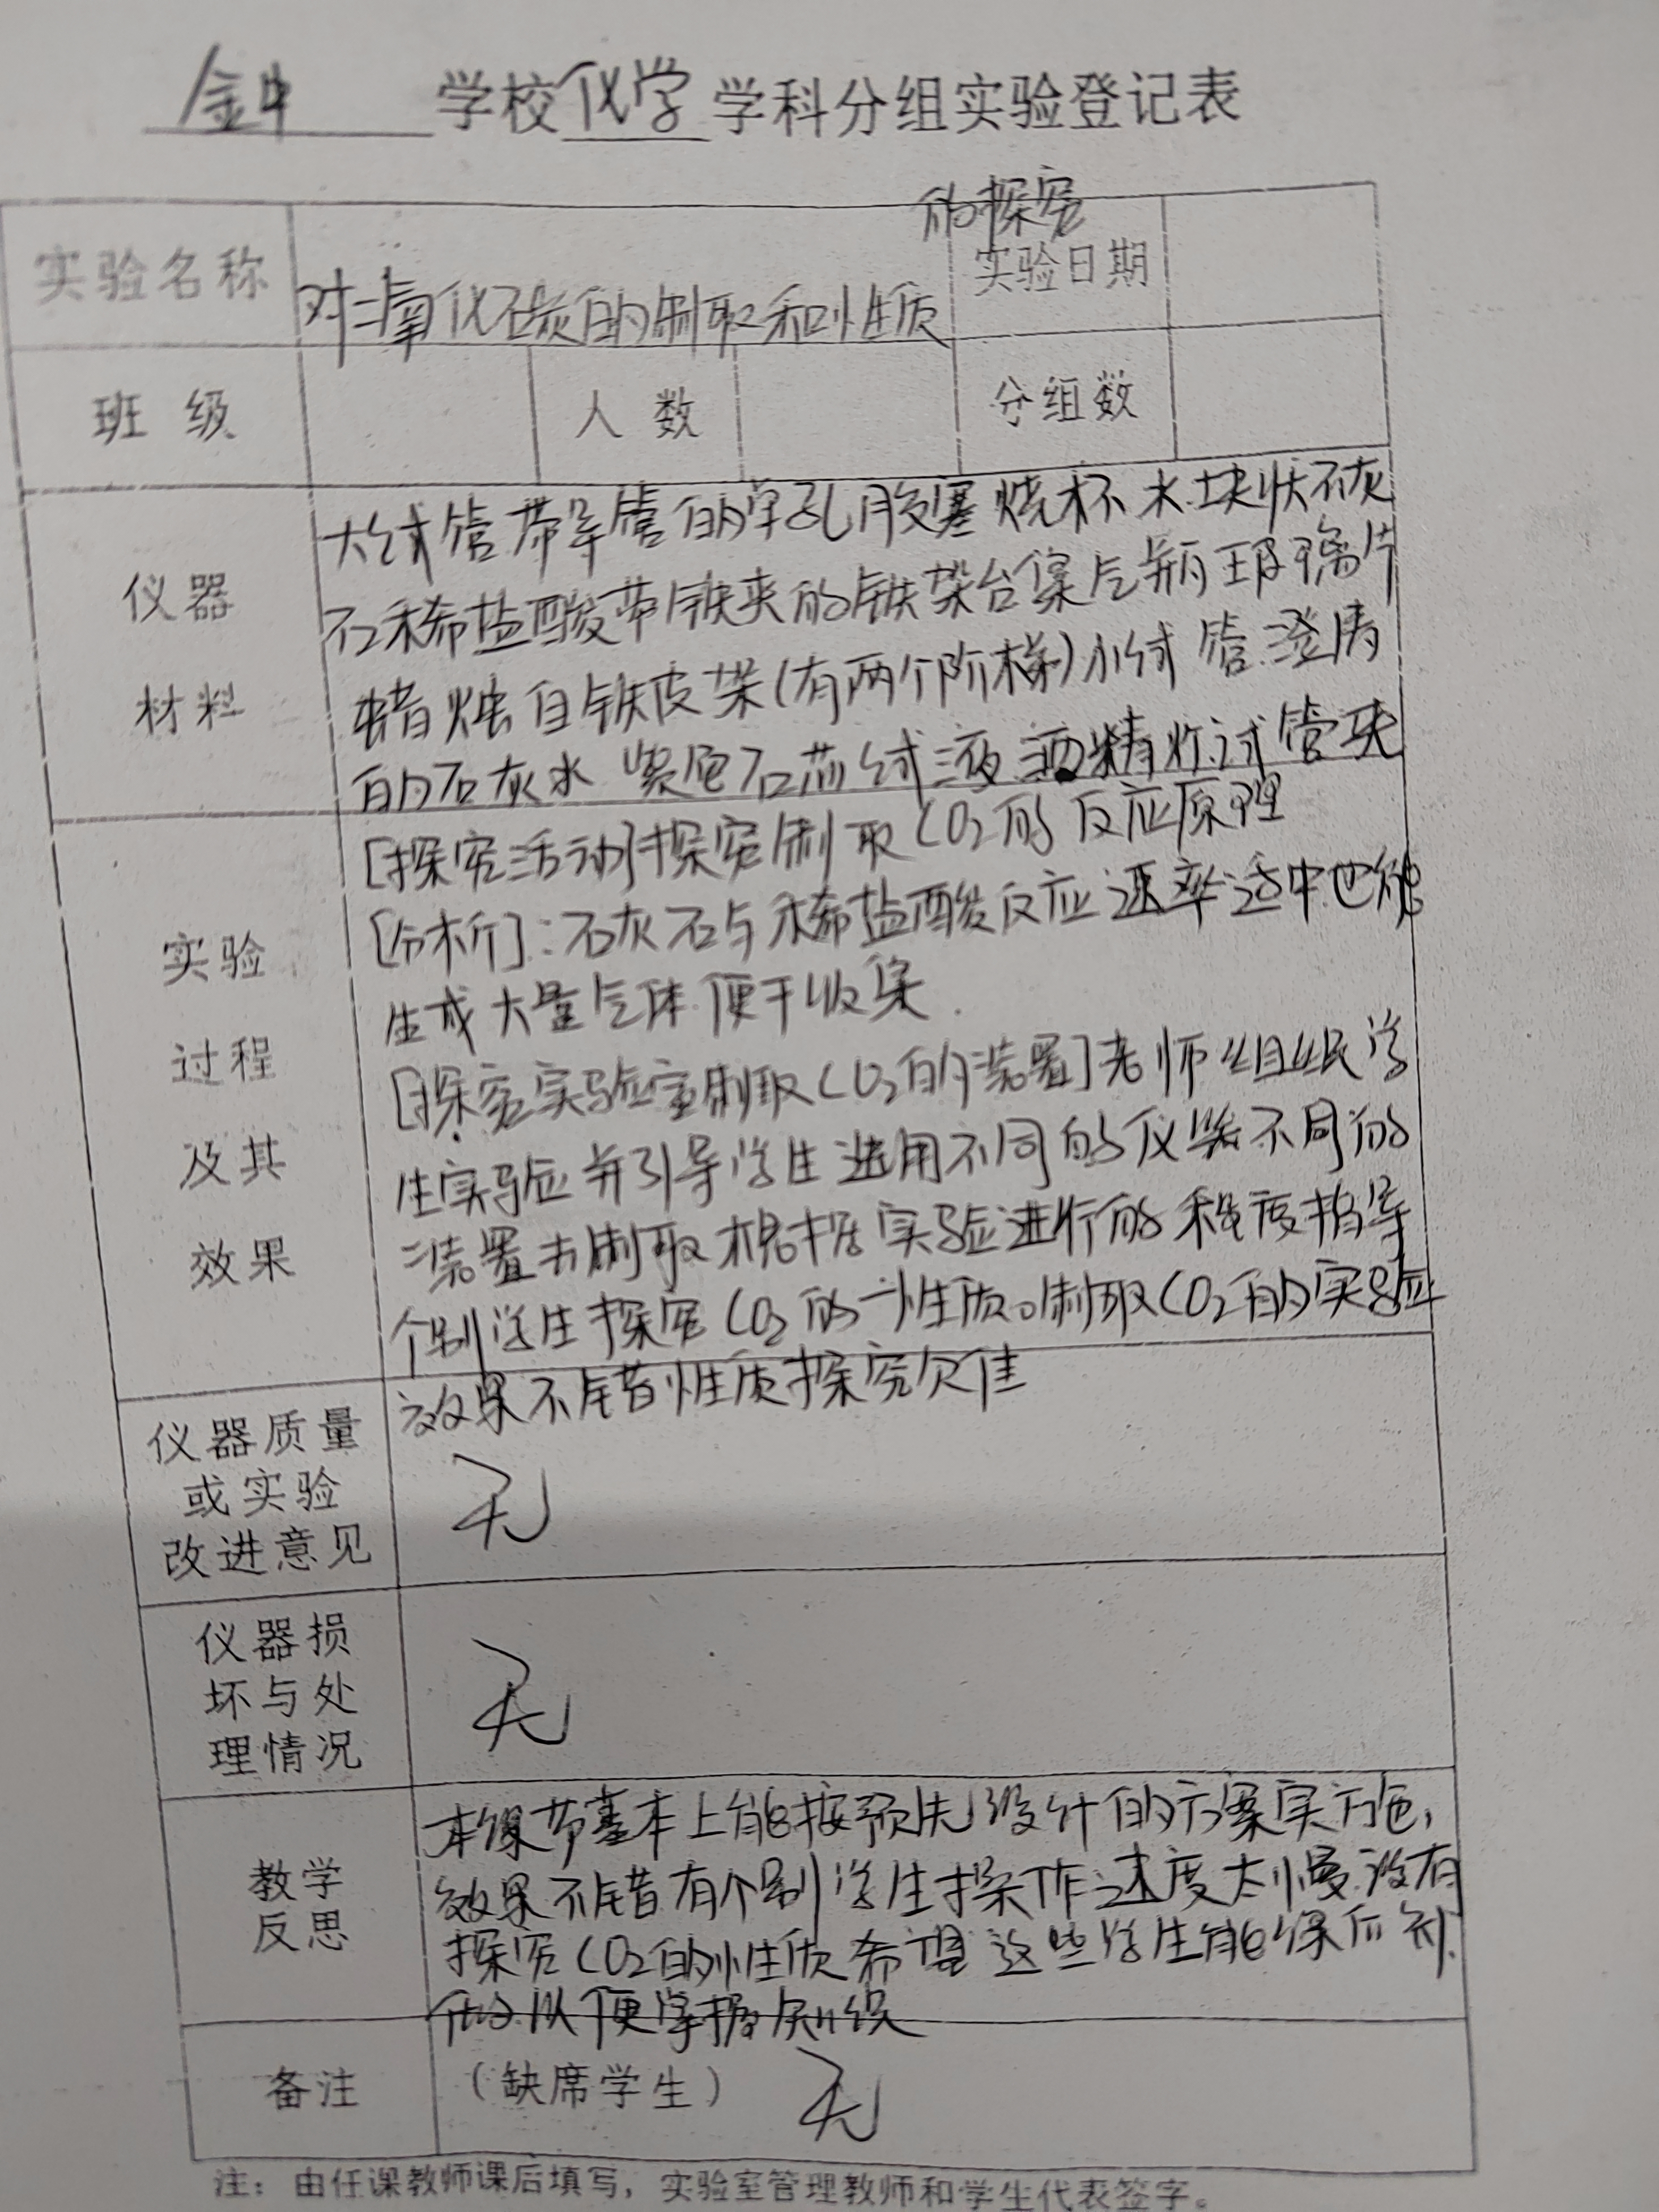 金中 学校 化学 学科分组实验登记表
的探究
实验名称 对二氧化碳的制取和性质 实验日期
班级 人数 分组数
仪器材料
大试管 带导管的单孔胶塞 烧杯 水 块状石灰
石 稀盐酸 带铁夹的铁架台 集气瓶 玻璃片
蜡烛 白铁皮架(有两个阶梯) 小试管 澄清
的石灰水 紫色石蕊试液 酒精灯 试管夹
实验过程及其效果
[探究活动]探究制取CO2的反应原理
[分析]:石灰石与稀盐酸反应速率适中也能
生成大量气体便于收集.
[探究实验室制取CO2的装置]老师组织学
生实验并引导学生选用不同的仪器不同的
装置去制取 根据实验进行的程度指导
个别学生探究CO2的性质。制取CO2的实验
效果不错 性质探究欠佳
仪器质量
或实验
改进意见
无
仪器损
坏与处
理情况
无
教学
反思
本课节基本上能按预先设计的方案实施,
效果不错 有个别学生操作速度太慢 没有
探究CO2的性质 希望这些学生能课后补
做 以便掌握知识
备注 (缺席学生) 无
注：由任课教师课后填写，实验室管理教师和学生代表签字。